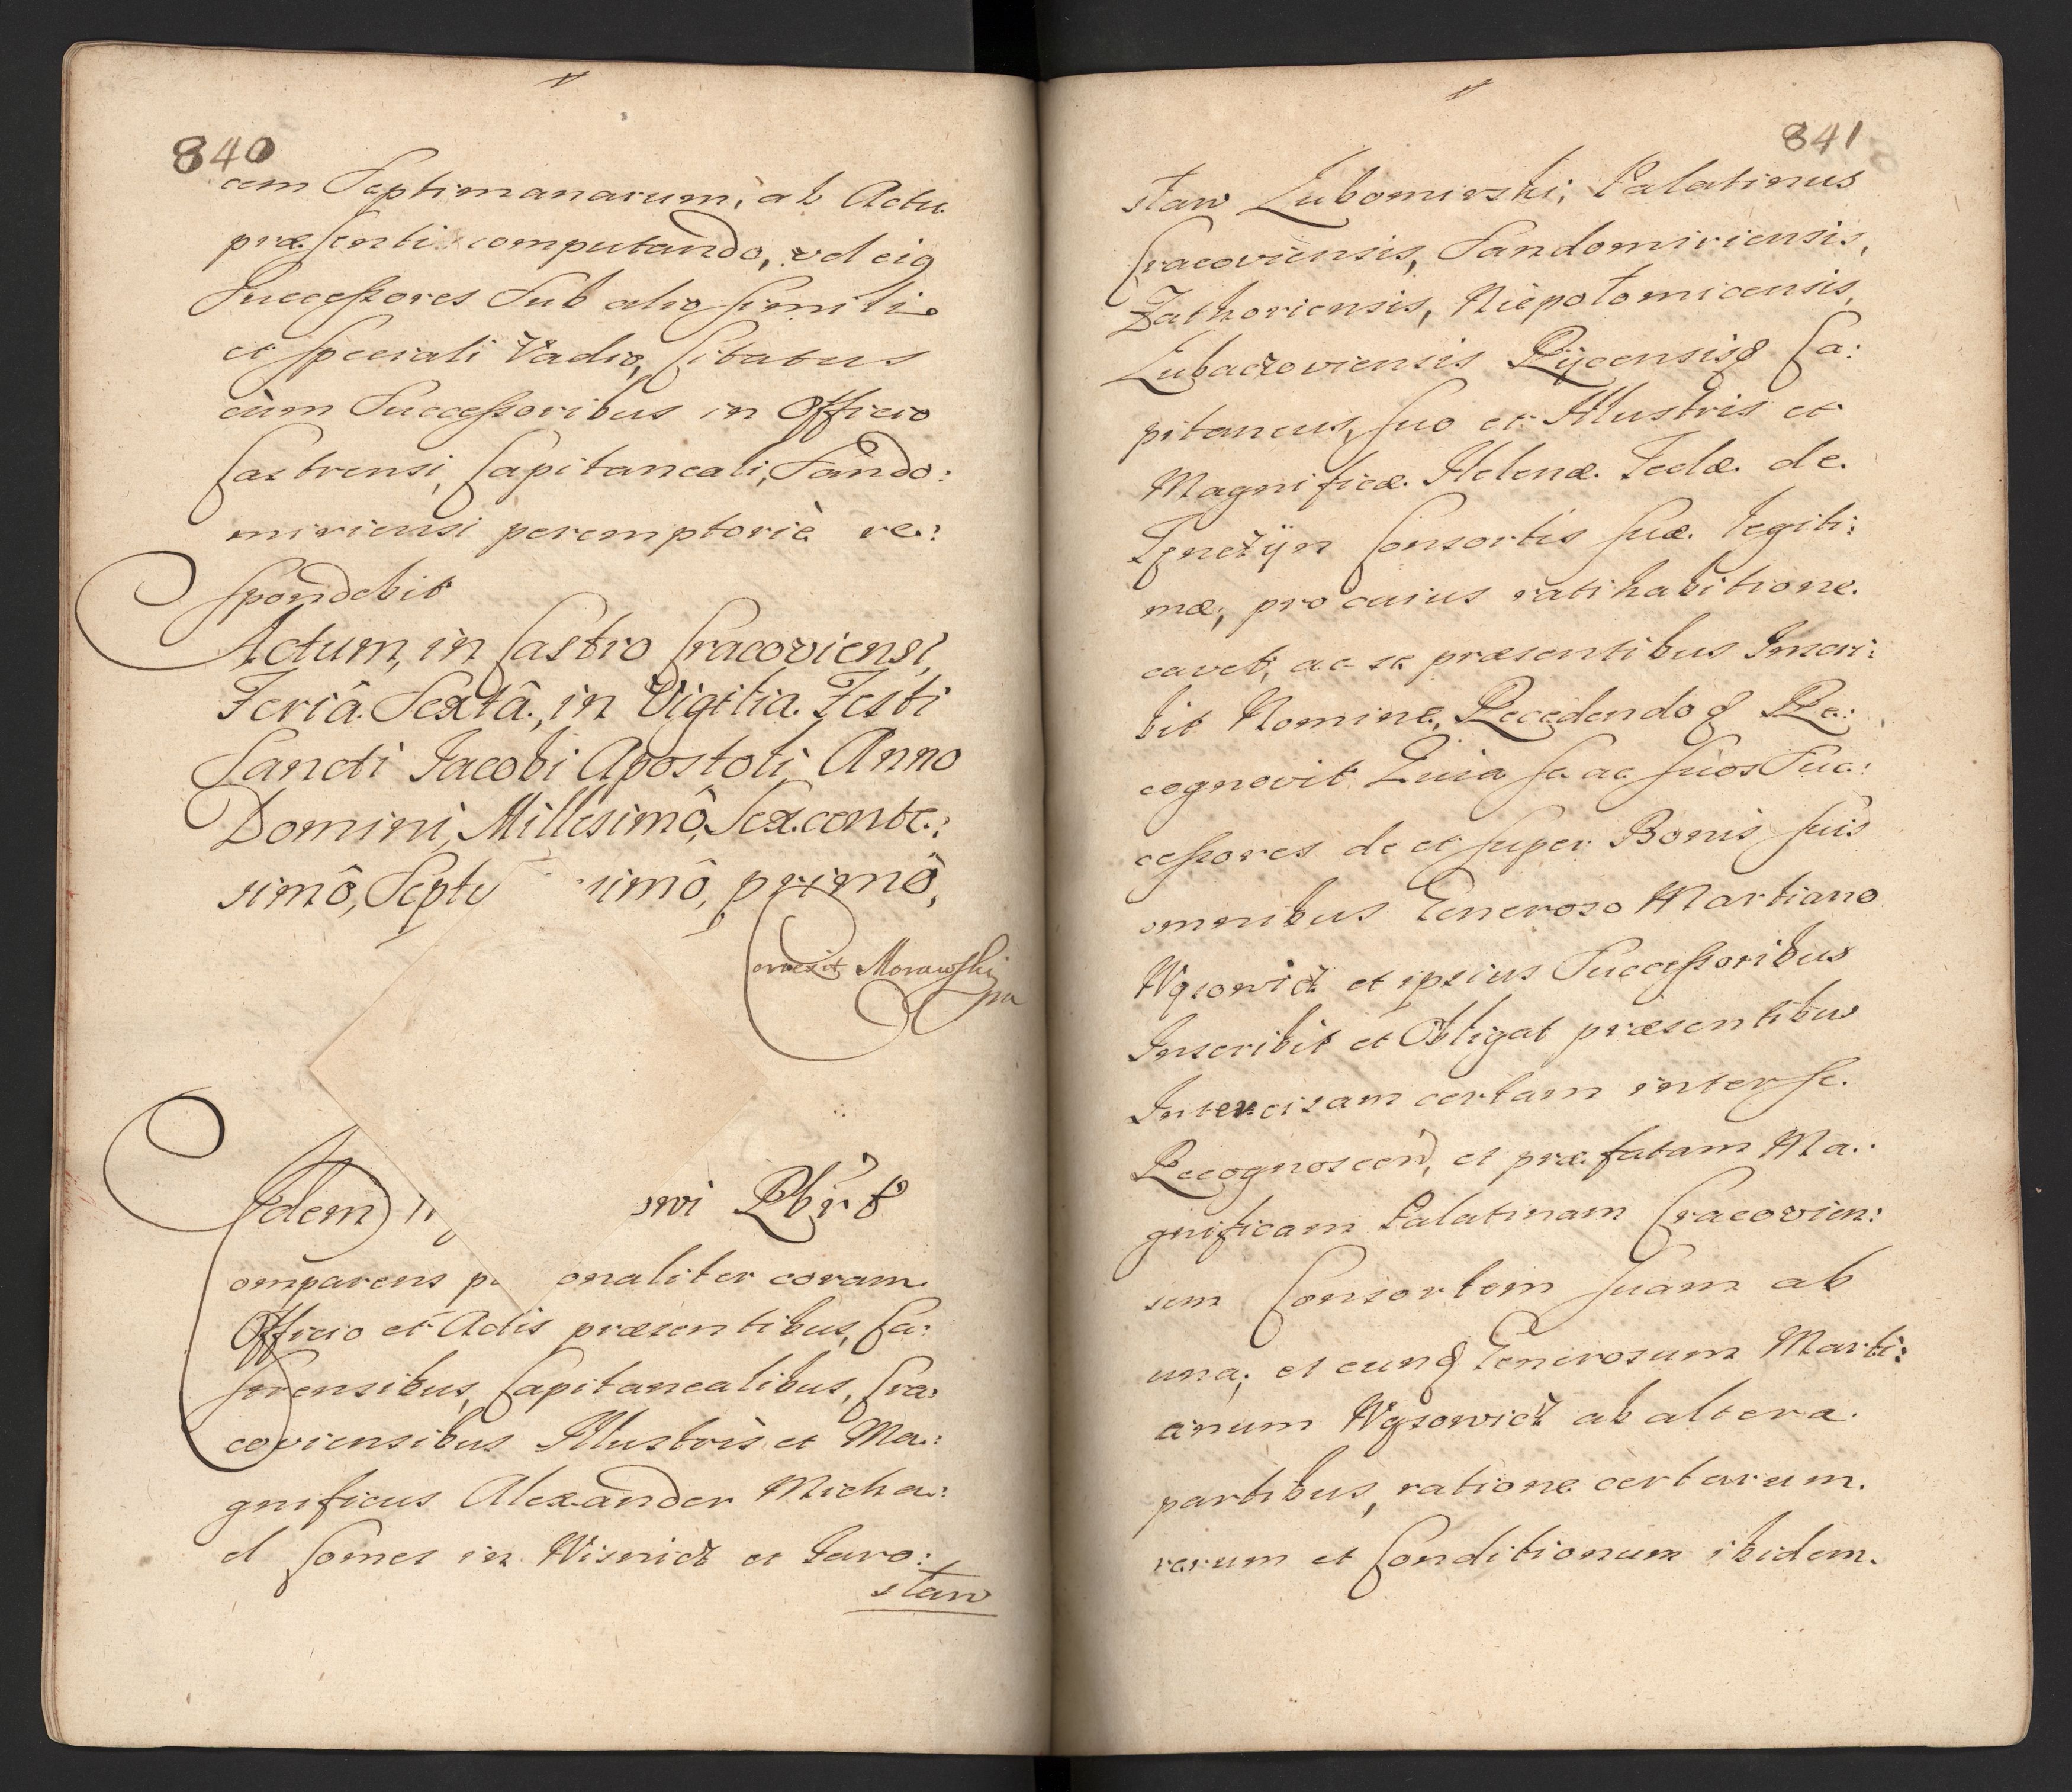 840
cem Septimanarum, ab Actu
præsenti computando, vel eig
Successores Sub alio simili
et speciali Vadio, Citatus
cùm Successoribus in Officio
Castrensi, Capitaneali, Sando:
miriensi peremptoriè re:
spondebit
Actum, in Castro Cracoviensi,
Feriâ Sextâ, in Vigilia Festi
Sancti Jacobi Apostoli Anno
Domini, Millesimô, Sexcente:
simô, Septu simô, primô,
Correxit Morawski
mp
Idem
omparens p onaliter coram
Officio et Actis præsentibus, Ca:
strensibus, Capitanealibus, Cra:
coviensibus Illustris et Ma:
gnificus Alexander Micha:
el Comes in Wisnicz et Jaro:
slaw
841
slaw Lubomirski, Palatinus
Cracoviensis, Sandomiriensis,
Zathoriensis, Niepotomicensis,
Lubaczoviensis Ryicensisq Ca:
pitaneus, suo et Illustris et
Magnificæ Helenæ Teclæ de
Tęnczyn Consortis suæ legiti:
mæ, pro cuius ratihabitione
cavet, ac se præsentibus Inscri:
bit Nomine, Recedendo q Re:
cognovit Quia se ac suos Suc:
cessores de et super Bonis suis
omnibus Generoso Martiano
Wąsowicz et ipsius Successoribus
Inscribit et Obligat præsentibus
Intercisam certam inter se
Recognoscen, et præfatam Ma:
gnificam Palatinam Cracovien:
sem Consortem suam ab
una, et eunq Generosum Marti:
anum Wąsowicz ab altera
partibus, ratione certarum
rerum et Conditionum ibidem